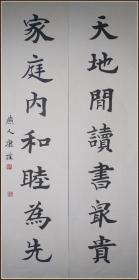 天地間讀書最貴
家庭内和睦為先
燕人